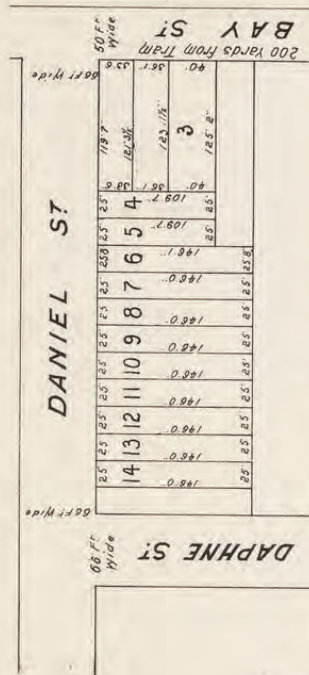 BAY ST
200 Yards from Tram
50 Ft Wide
66 Ft Wide
DANIEL ST
33.6 36.1 40.'
119'7" 121'3½ 123.1½" 3 125'2"
33.6 36.1 40.'
25' 4 109.7 25'
25' 5 109.7" 25'
25.8 6 146.1" 25.8
25' 7 146.0" 25'
25' 8 146.0" 25'
25' 9 146.0" 25'
25' 10 146.0" 25'
25' 11 146.0" 25'
25' 12 146.0" 25'
25 13 146.0" 25
25 14 146.0" 25
66 Ft Wide
66 Ft Wide
DAPHNE ST